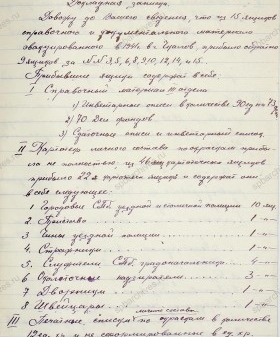 Докладная записка.
Довожу до Вашего сведения, что из 15 ящиков
справочного и документального материала
эвакуированного в 1941г. в г. прибыло обратно
9 ящиков за NN 3, 5, 6, 8, 9, 10, 12, 14, и 15.
Прибывшие ящики содержат в себе:
I Справочный материал отдела
1) Инвентарные описи в количестве
2) 70 Дел фондов
3) Сдаточные описи и инвентарный список.
II Картотека личного состава по прибы-
ла не полностью, из 46 ящиков
прибыло 22 ящика и содержат они
в себе следующее:
1 Городовые СПб. уездной и конной полиции 10 ящ.
2. 3 -"-
3. Чины уездной полиции 1 -"-
4. Стражники 1 -"-
5. Служители СПб. градоначальника 4 -"-
6 Околоточные надзиратели 3 -"-
7 Дворники 1 -"-
8 Швейцары 1 -"-
личного состава
III Печатные списки по в количестве
и не сформированные в